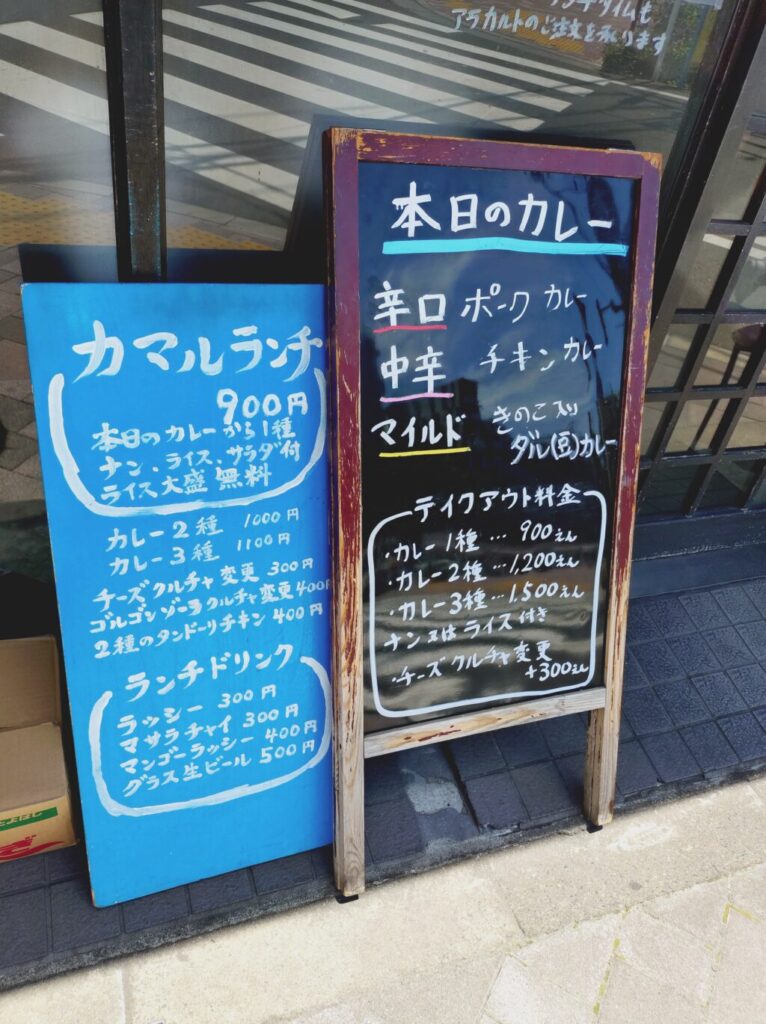 ンチタイムも
アラカルトのご注文を承ります
カマルランチ
900円
本日のカレーから1種
ナン、ライス、サラダ付
ライス大盛無料
カレー2種 1000円
カレー3種 1100円
チーズクルチャ変更 300円
ゴルゴンゾーラクルチャ変更400円
2種のタンドーリチキン 400円
ランチドリンク
ラッシー 300円
マサラチャイ 300円
マンゴーラッシー 400円
グラス生ビール 500円
本日のカレー
辛口 ポークカレー
中辛 チキンカレー
マイルド きのこ入り
ダル(豆)カレー
テイクアウト料金
・カレー1種…900えん
・カレー2種…1,200えん
・カレー3種…1,500えん
ナン又はライス付き
・チーズクルチャ変更
+300えん